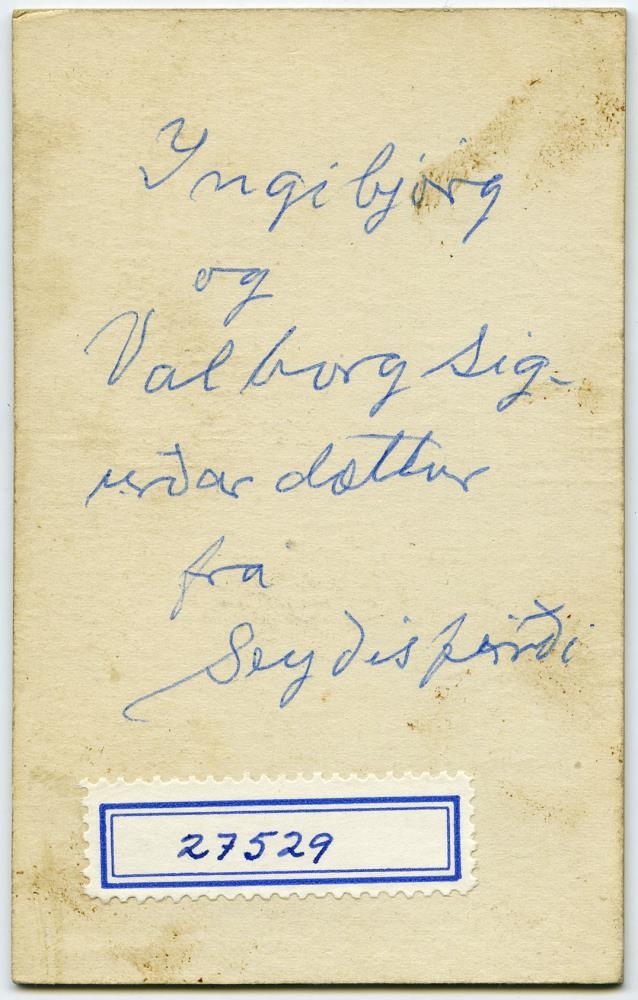 Yngibjörg
og
Valborg Sig-
urðar dættur
frá
Seyðisfirði
27529